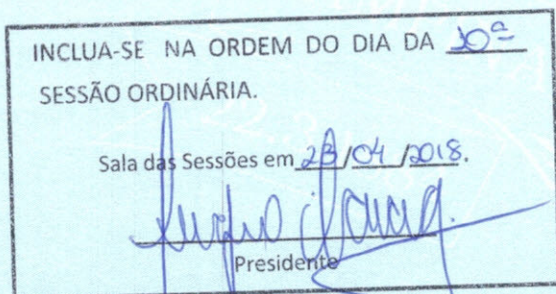 INCLUA-SE NA ORDEM DO DIA DA 10ª
SESSÃO ORDINÁRIA.
Sala das Sessões em 23/04/2018.
Presidente